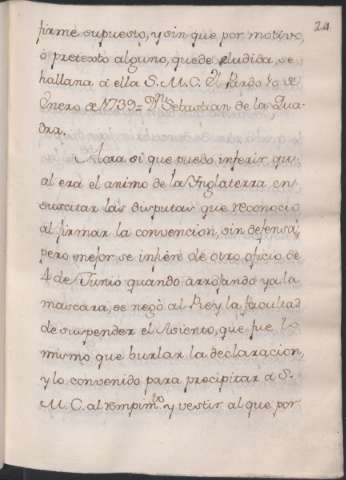 24
firme supuesto, y sin que por motivo,
ò pretexto alguno, quede eludida, se
hallana à ella S. M. C. El Pardo 10 de
Enero de 1739 = Dn Sebastian de la Qua-
dra.
Aora si que puedo inferir, qu-
al era el animo de la Ynglaterra, en
suscitar las disputas que reconocio
al firmar la convencion, sin defensa;
pero mejor se infiere de otro oficio de
4 de Junio quando arrojando ya la
mascara, se negò al Rey la facultad
de suspender el Asiento, que fue lo
mismo que burlar la declaracion,
y lo convenido para precipitar a S.
M. C. al rompimto y vestir al que por